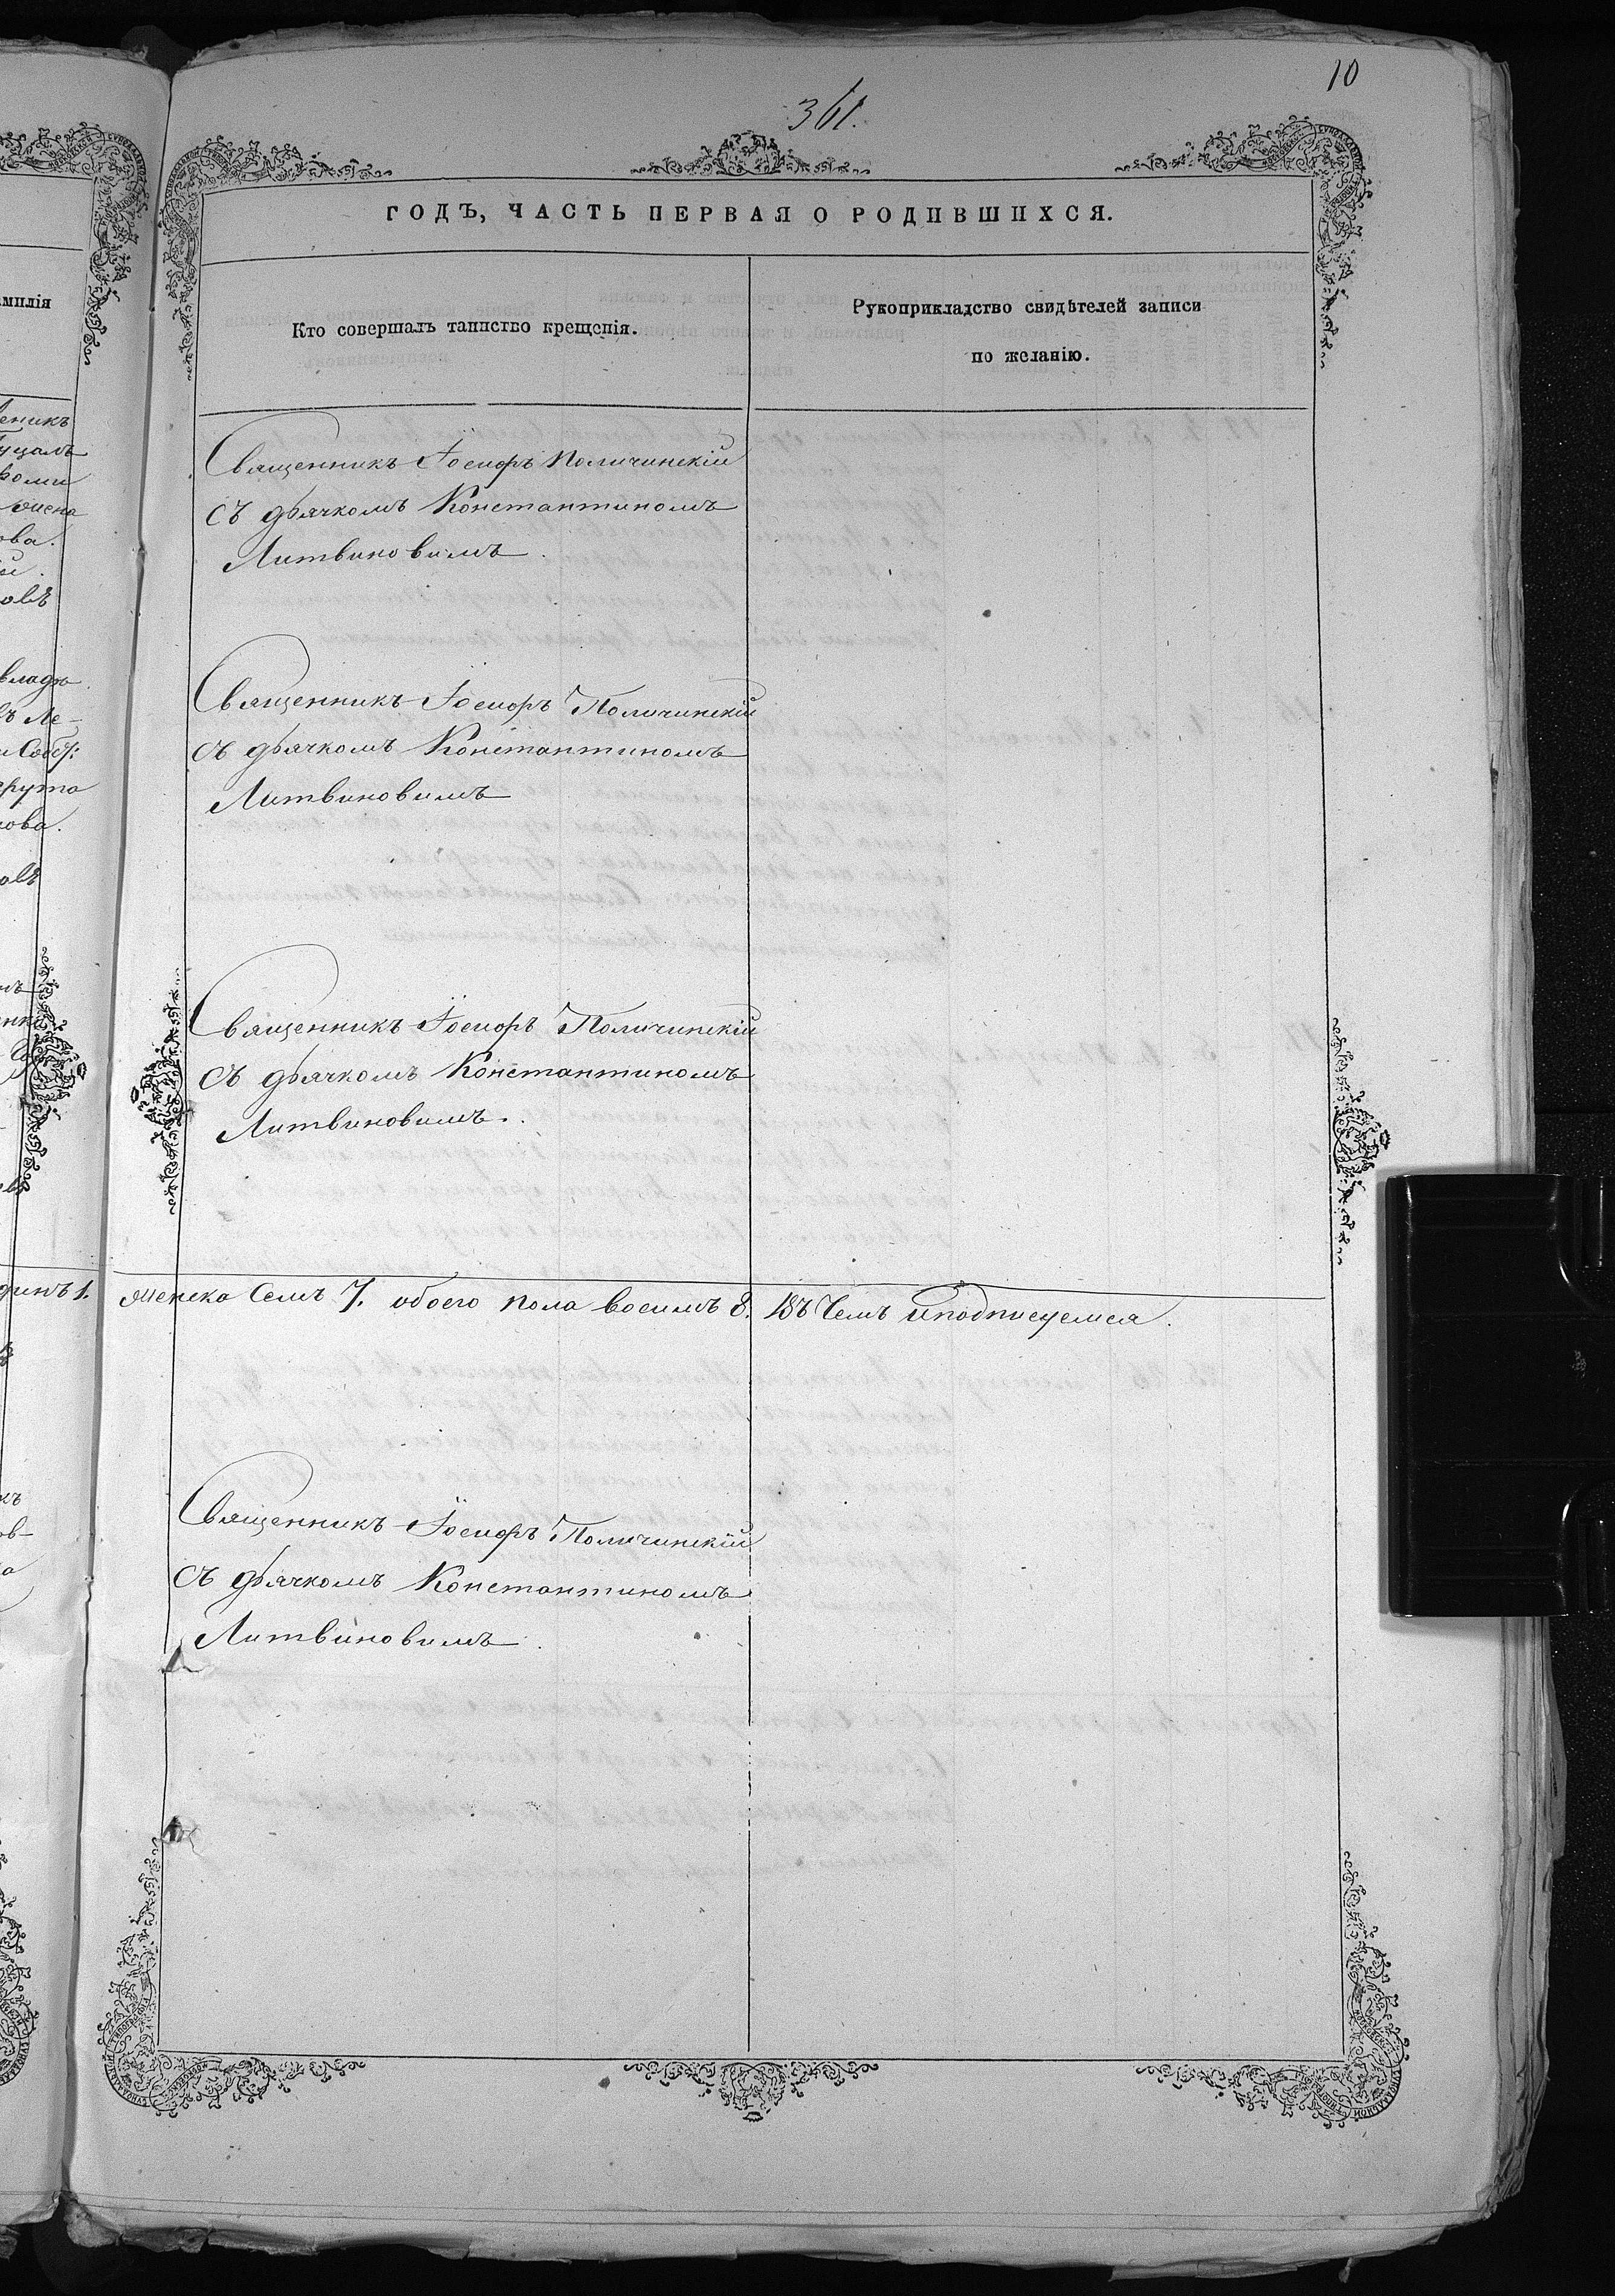 10
361.
ГОДЪ, ЧАСТЬ ПЕРВАЯ О РОДИВШИХСЯ.
Кто совершалъ таинство крещенія.
Рукоприкладство свидѣтелей записи
по желанію.
Священникъ Іосифъ Поличинскій
съ дьячкомъ Константиномъ
Литвиновимъ.
Священникъ Іосифъ Поличинскій
съ дьячкомъ Константиномъ
Литвиновимъ
Священникъ Іосифъ Поличинскій
съ дьячкомъ Константиномъ
Литвиновимъ.
женска Семъ 7. обоего пола восимъ 8. Въ Чемъ иподписуемся.
Священникъ Іосифъ Поличинскій
съ дьячкомъ Константиномъ
Литвиновимъ.
амилія
еникъ
ова.
овъ
влада
въ Ле-
и Собст:
нова.
динъ 1.